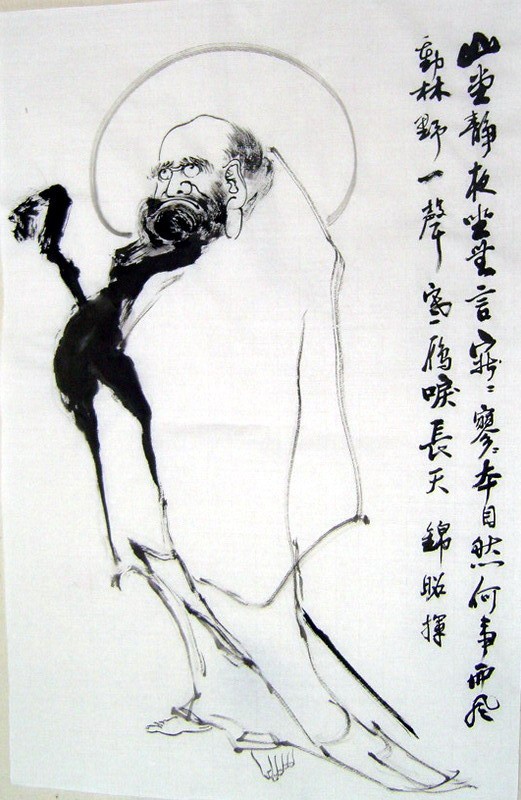 山堂静夜坐無言寂〻寥〻本自然何事西风
動林野一聲寒雁唳長天 錦昭揮